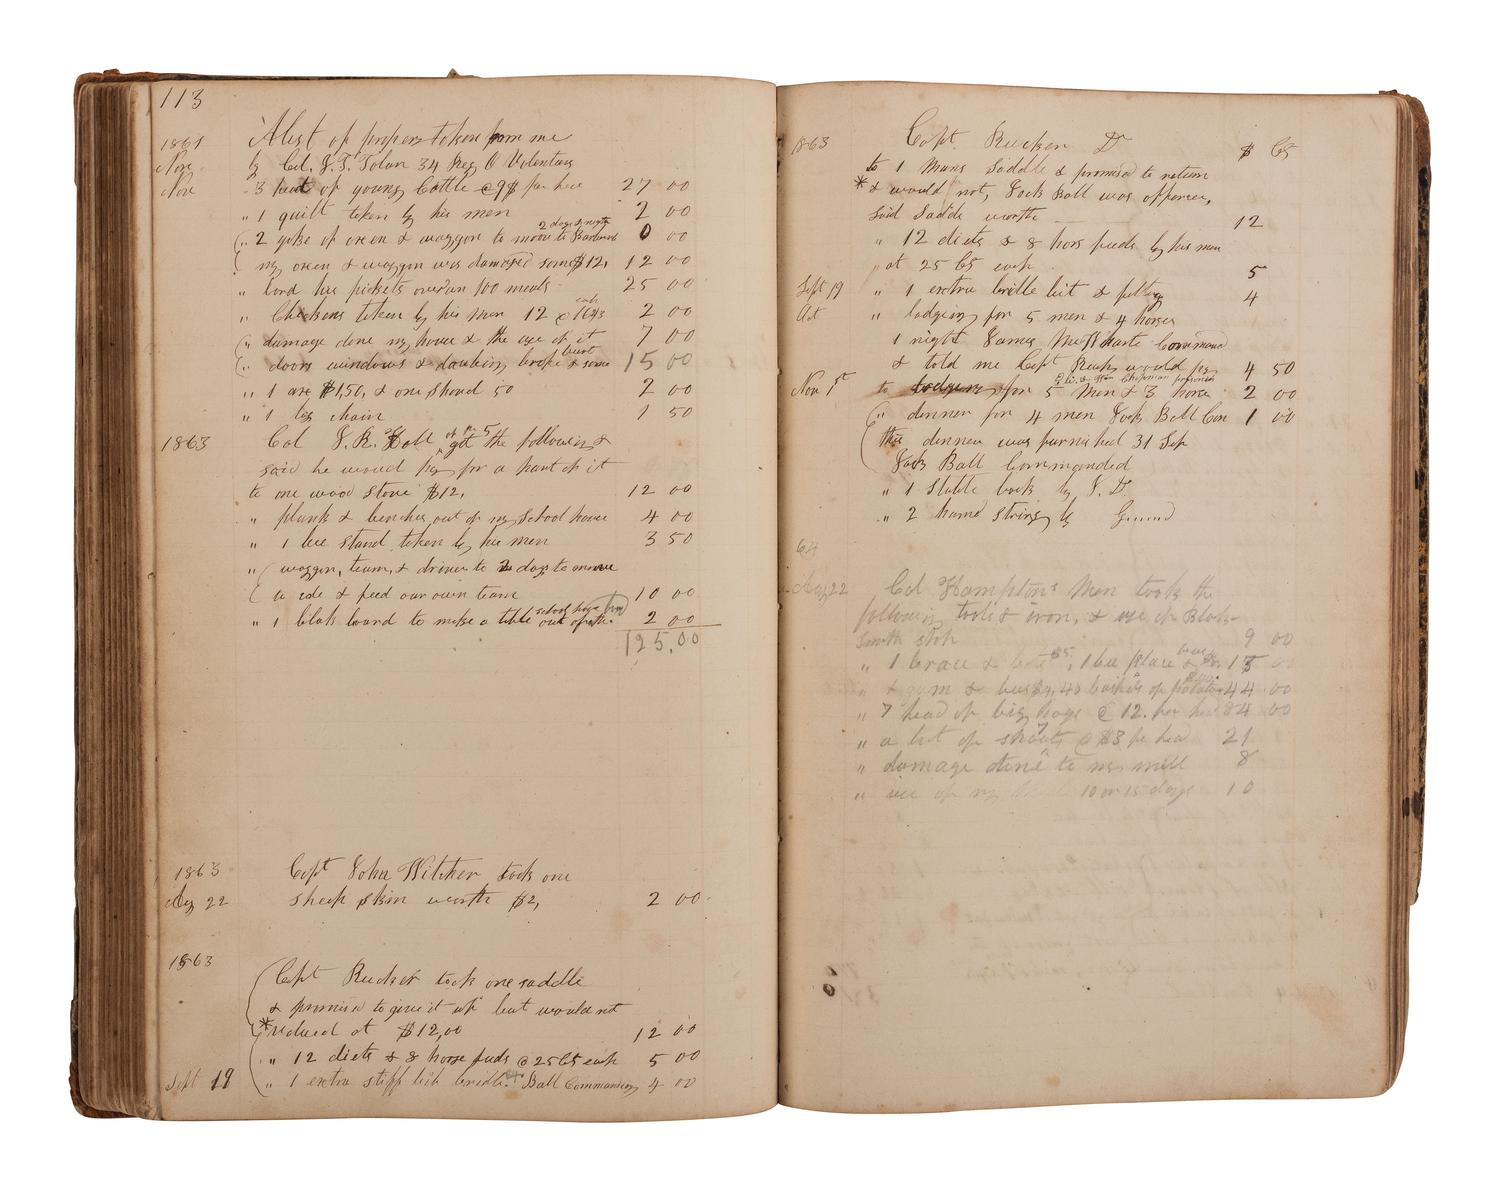 113
1861 A list of propery taken from me
Nov by Col. J. T. Tolan 34 Reg O Volentary
Nov 3 head of young Cattle @ 9$ per hea 27 00
" 1 quilt taken by his men 2 00
" 2 yoke of oxen & waggon to moove to 2 days & nights 0 00
my oxen & waggon was damaged some $12, 12 00
" bord his pickets over an 100 meals 25 00
" Chickens taken by his men 12 @ each 2 00
" damage done my house & the use of it 7 00
" doors windows & daubing broke & some burnt 15 00
" 1 axe $1,50, & one shovel 50 2 00
" 1 log chain 1 50
1863 Col J. R. Ball of the 5 got the following &
said he would pay for a part of it
to one wood stove $12, 12 00
" plank & benches out of my School house 4 00
" 1 bee stand taken by his men 3 50
" waggon, team, & driver to 2 days to moove
& feed our own team 10 00
" 1 blak board to make a table out of the school house 2 00
125,00
1863 Capt John Witcher took one
Aug 22 sheep skin worth $2, 2 00
1863 Capt Rucker took one saddle
& promised to give it up but would not
* valued at $12,00 12 00
" 12 diets & 8 horse feeds @ 25 Cts each 5 00
Sept 19 " 1 extra stiff bit bridle Ball Commanding 4 00
1863 Capt Rucker Dr $ Cts
to 1 Mans Saddle & promised to return
* & would not, Jack Ball was officer,
Said Saddle worth 12
" 12 diets & 8 hors feeds by his men
at 25 Cts each 5
Sept 19 " 1 extra bridle bit & 4
Oct " lodging for 5 men & 4 horses
1 night James Command
& told me Capt Rucker would pay 4 50
Nov 1st to lodging for 5 Men & 3 horse 2 00
" dinner for 4 men Jack Ball Com 1 00
this dinner was furnished 31 Sep
Jack Ball Commanded
" 1 Stable lock by J. D.
" 2 hame strings by
64
Aug 22 Col Hamptons Men took the
following tools & iron, & use of Blak
Smith shop 9 00
" 1 brace & $5, 1 bee
" & gum & bees $4, 40 bushels of potatoes 44 00
" 7 head of big hogs @ 12. per hed 84 00
" a lot of shoats 7 @ $3 per hea 21
" damage done to my mill 8
" use of my 10 or 15 days 10